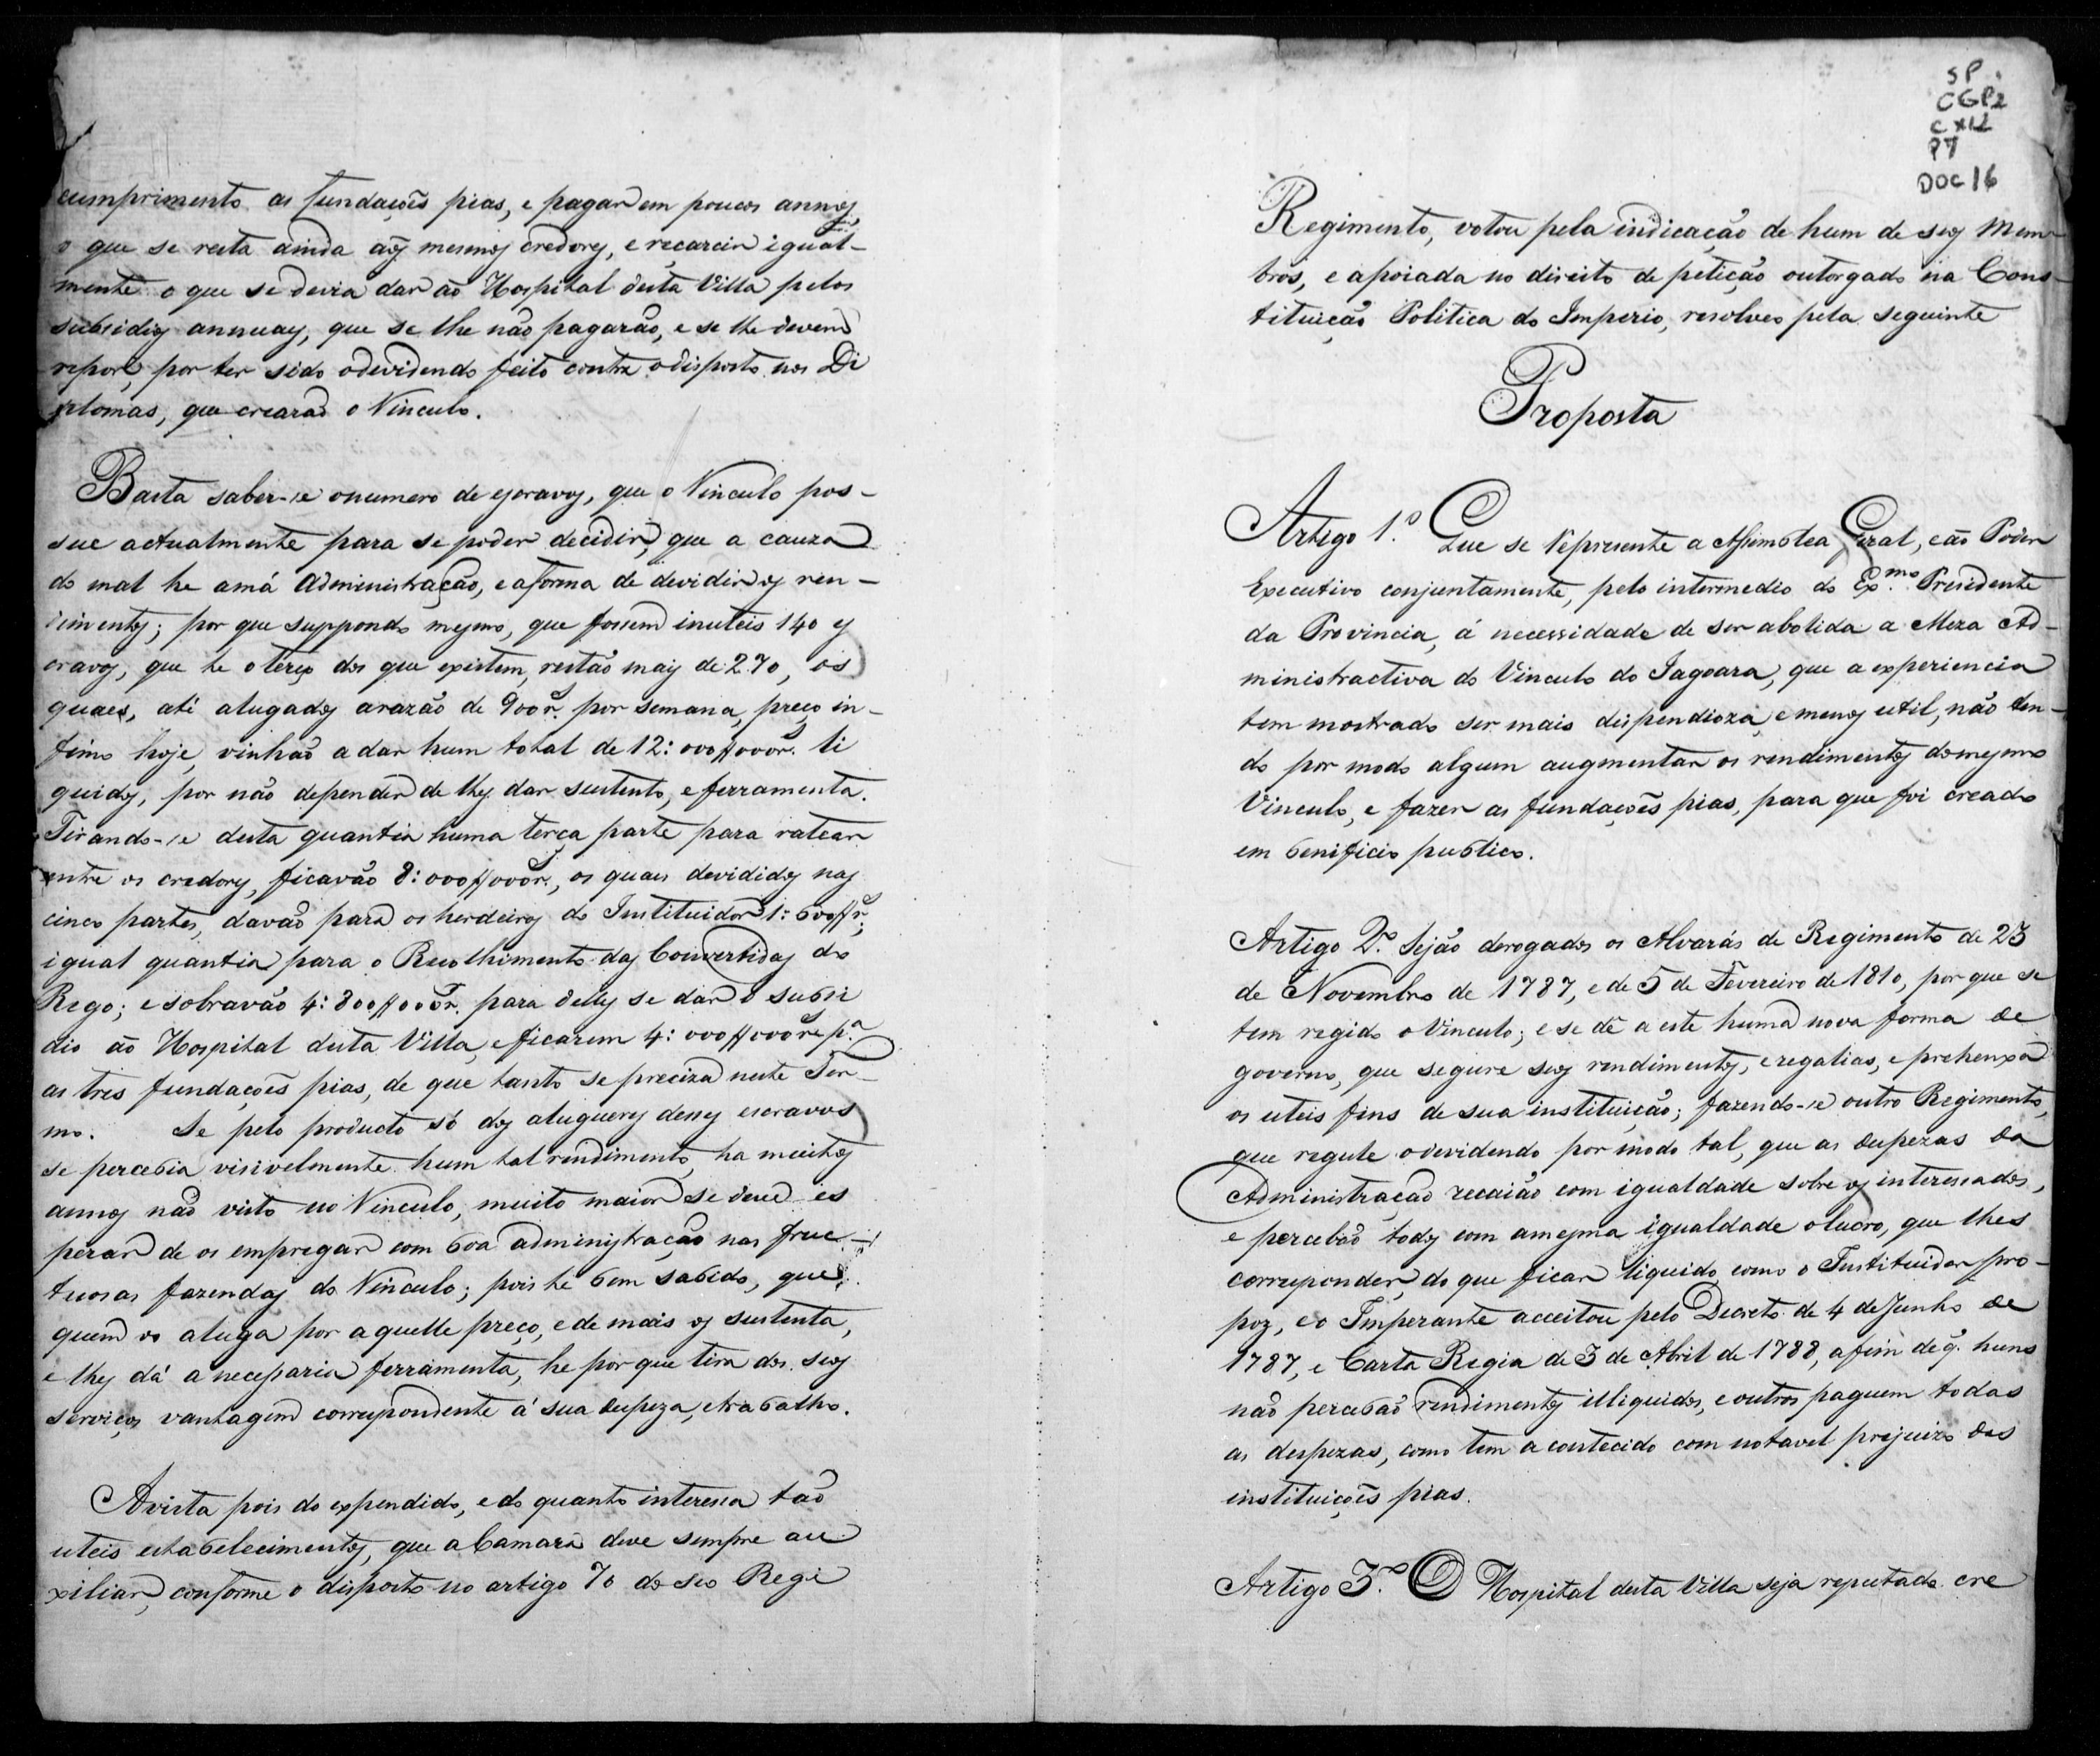 cumprimento as fundaçoẽs pias, e pagar em poucos annos,
o que se resta ainda aõs mesmos credores, e recarcir igual-
mente o que se devia dar aõ Hospital desta Villa pelos
subsidios annuaes, que se lhe não pagarão, e se lhe devem
repor, por ter sido odevidendo feito contra odisposto nos Di
plomas, que crearaõ o Vinculo.
Basta saber-se onumero de escravos, que o Vinculo pos-
sue actualmente para se poder decidir, que a cauza
do mal he amá Administração, eaforma de devidir os ren-
dimentos; por que suppondo mesmo, que fossem inuteis 140 es
cravos, que he oterço dos que existem, restão mais de 270, os
quaes, até alugados arazão de 900 r.s por semana, preço in-
fimo hoje, vinhaõ adar hum total de 12:000$000 r.s li
quidos, por não depender de lhes dar sustento, e ferramenta.
Tirando-se desta quantia huma terça parte para ratear
entre os credores, ficavão 8:000$000 r.s, os quaes devididos nas
cinco partes, davaõ para os herdeiros do Instituidor 1:600$ r.s;
igual quantia para o Recolhimento das Convertidas do
Rego; e sobravão 4:800$000 r.s para delles se dar o subsi
dio aõ Hospital desta Villa, e ficarem 4:000$000 r.s p.a
as tres fundaçoẽs pias, de que tanto se preciza neste Ter-
mo. Se pelo producto só dos alugueres desses escravos
se percebia visivelmente hum tal rendimento, ha muitos
annos naõ visto no Vinculo, muito maior se deve es
perar de os empregar com boa administração nas fruc-
tuosas fazendas do Vinculo; pois he bem sabido, que
quem os aluga por aquelle preço, e de mais os sustenta,
e lhes dá a necessaria ferramenta, he por que tira dos seos
serviços vantagem correspondente á sua despeza, etrabalho.
Avista pois do expendido, e do quanto interessa taõ
uteis estabelecimentos, que a Camara deve sempre au
xiliar, conforme o disposto no artigo 70 do seo Regi
SP
CGP2
C XII
P7
DOC 16
Regimento, votou pela indicação de hum de seos Mem-
bros, e apoiada no direito de petição outorgado na Cons-
tituição Politica do Imperio, resolveo pela seguinte
Proposta
Artigo 1.º Que se Represente a Assemblea Geral, eaõ Poder
Executivo conjuntamente, pelo intermedio do Ex.mo Presidente
da Provincia, á necessidade de ser abolida a Meza Ad-
ministractiva do Vinculo do Jagoara, que a experiencia
tem mostrado ser mais dispendioza, e menos util, não ten-
do por modo algum augmentar os rendimentos domesmo
Vinculo, e fazer as fundaçoẽs pias, para que foi creado
em beneficio publico.
Artigo 2.º Sejão derogados os Alvarás de Regimento de 23
de Novembro de 1787, e de 5 de Fevereiro de 1810, por que se
tem regido o Vinculo; e se dê a este huma nova forma de
governo, que segure seos rendimentos, e regalias, e prehenxa
os uteis fins de sua instituição; fazendo-se outro Regimento,
que regule odevidendo por modo tal, que as despezas da
Administração recaião com igualdade sobre os interessados,
e percebaõ todos com amesma igualdade olucro, que lhes
corresponder, do que ficar liquido, como o Instituidor pro-
poz, e o Imperante acceitou pelo Decreto de 4 de Junho de
1787, e Carta Regia de 3 de Abril de 1788, afim de q̃. huns
naõ percebaõ rendimentos illiquidos, e outros paguem todas
as despezas, como tem acontecido com notavel prejuizo das
instituiçoẽs pias.
Artigo 3.º O Hospital desta Villa seja reputado cre